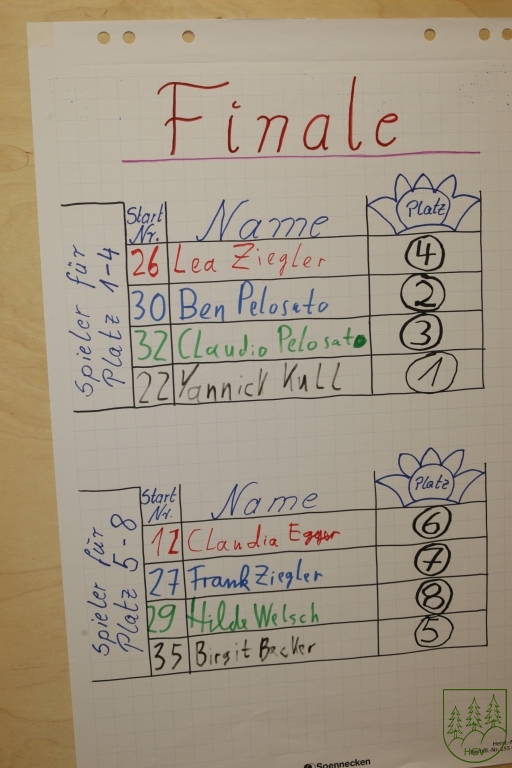 Finale
Spieler für
Platz 1-4
Start
Nr.
Name
Platz
26 Lea Ziegler 4
30 Ben Pelosato 2
32 Claudio Pelosato 3
22 Yannick Kull 1
Spieler für
Platz 5-8
Start
Nr.
Name
Platz
12 Claudia Egger 6
27 Frank Ziegler 7
29 Hilde Welsch 8
35 Birgit Becker 5
Soennecken
HGV